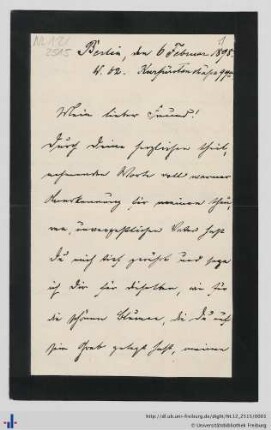 NL 121
2515
1
Berlin, den 6 Februar 1898.
W. 62. Kurfürstenstraße
Mein lieber Freund!
Durch Deine herzlichen theil-
nehmenden Worte voll warmer
Anerkennung für meinen theu-
ren, unvergeßlichen Vater hast
Du mich tief gerührt und sage
ich Dir für dieselben, wie für
die schönen Blumen, die Du auf
sein Grab gelegt hast, meinen
http://dl.ub.uni-freiburg.de/diglit/NL12_2515/0001
© Universitätsbibliothek Freiburg